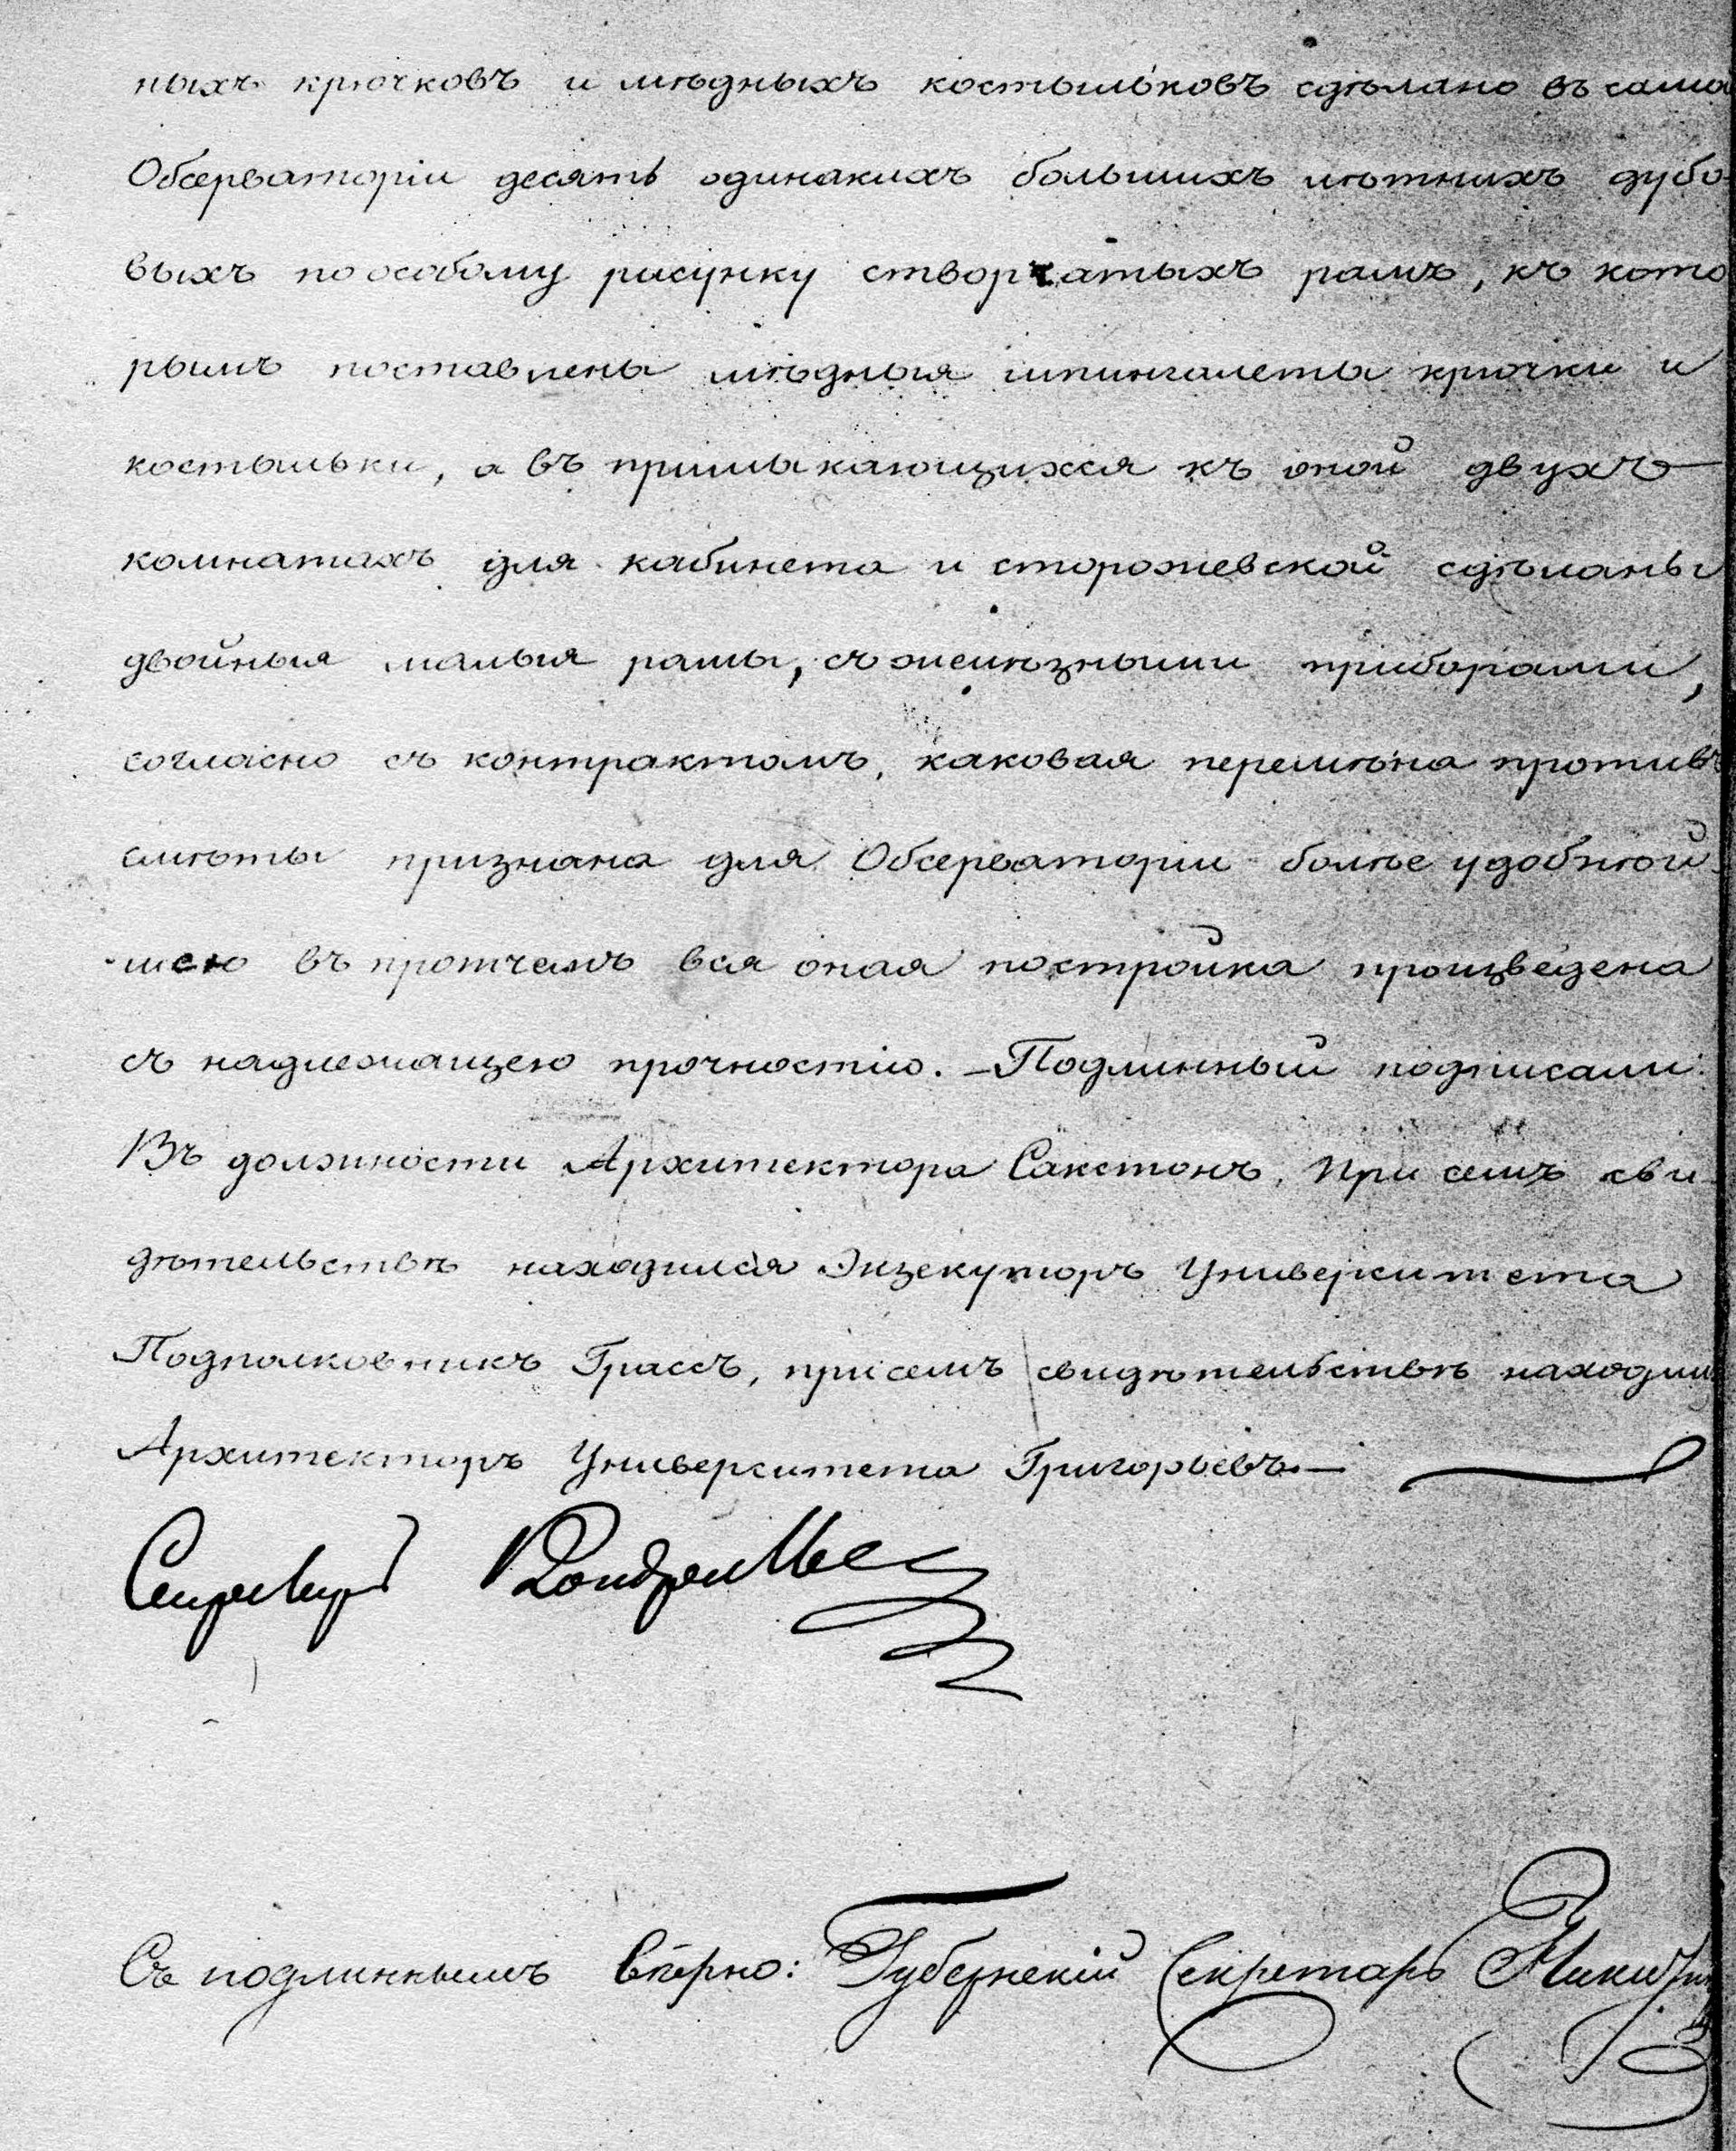 ныхъ крючковъ и мѣдныхъ костыльковъ сдѣлано въ само
Обсерваторіи десять одинакихъ большихъ лѣтнихъ дубо-
выхъ по особому рисунку створчатыхъ рамъ, къ кото
рымъ поставлены мѣдныя шпингалеты крючки и
костыльки, а въ примыкающихся къ оной двухъ
комнатахъ для кабинета и сторожевской сдѣланы
двойныя малыя рамы, съ желѣзными приборами,
согласно съ контрактомъ, каковая перемѣна противъ
смѣты признана для Обсерваторіи болѣе удобнѣй-
шею въ протчемъ вся оная постройка произведена
съ надлежащею прочностію. — Подлинный подписали:
Въ должности Архитектора Сакстонъ. При семъ сви-
дѣтельствѣ находился Экзекуторъ Университета
Подполковникъ Грассъ, при семъ свидѣтельствѣ находил
Архитекторъ Университета Григорьевъ. —
Секретарь
Съ подлиннымъ вѣрно: Губернскій Секретарь